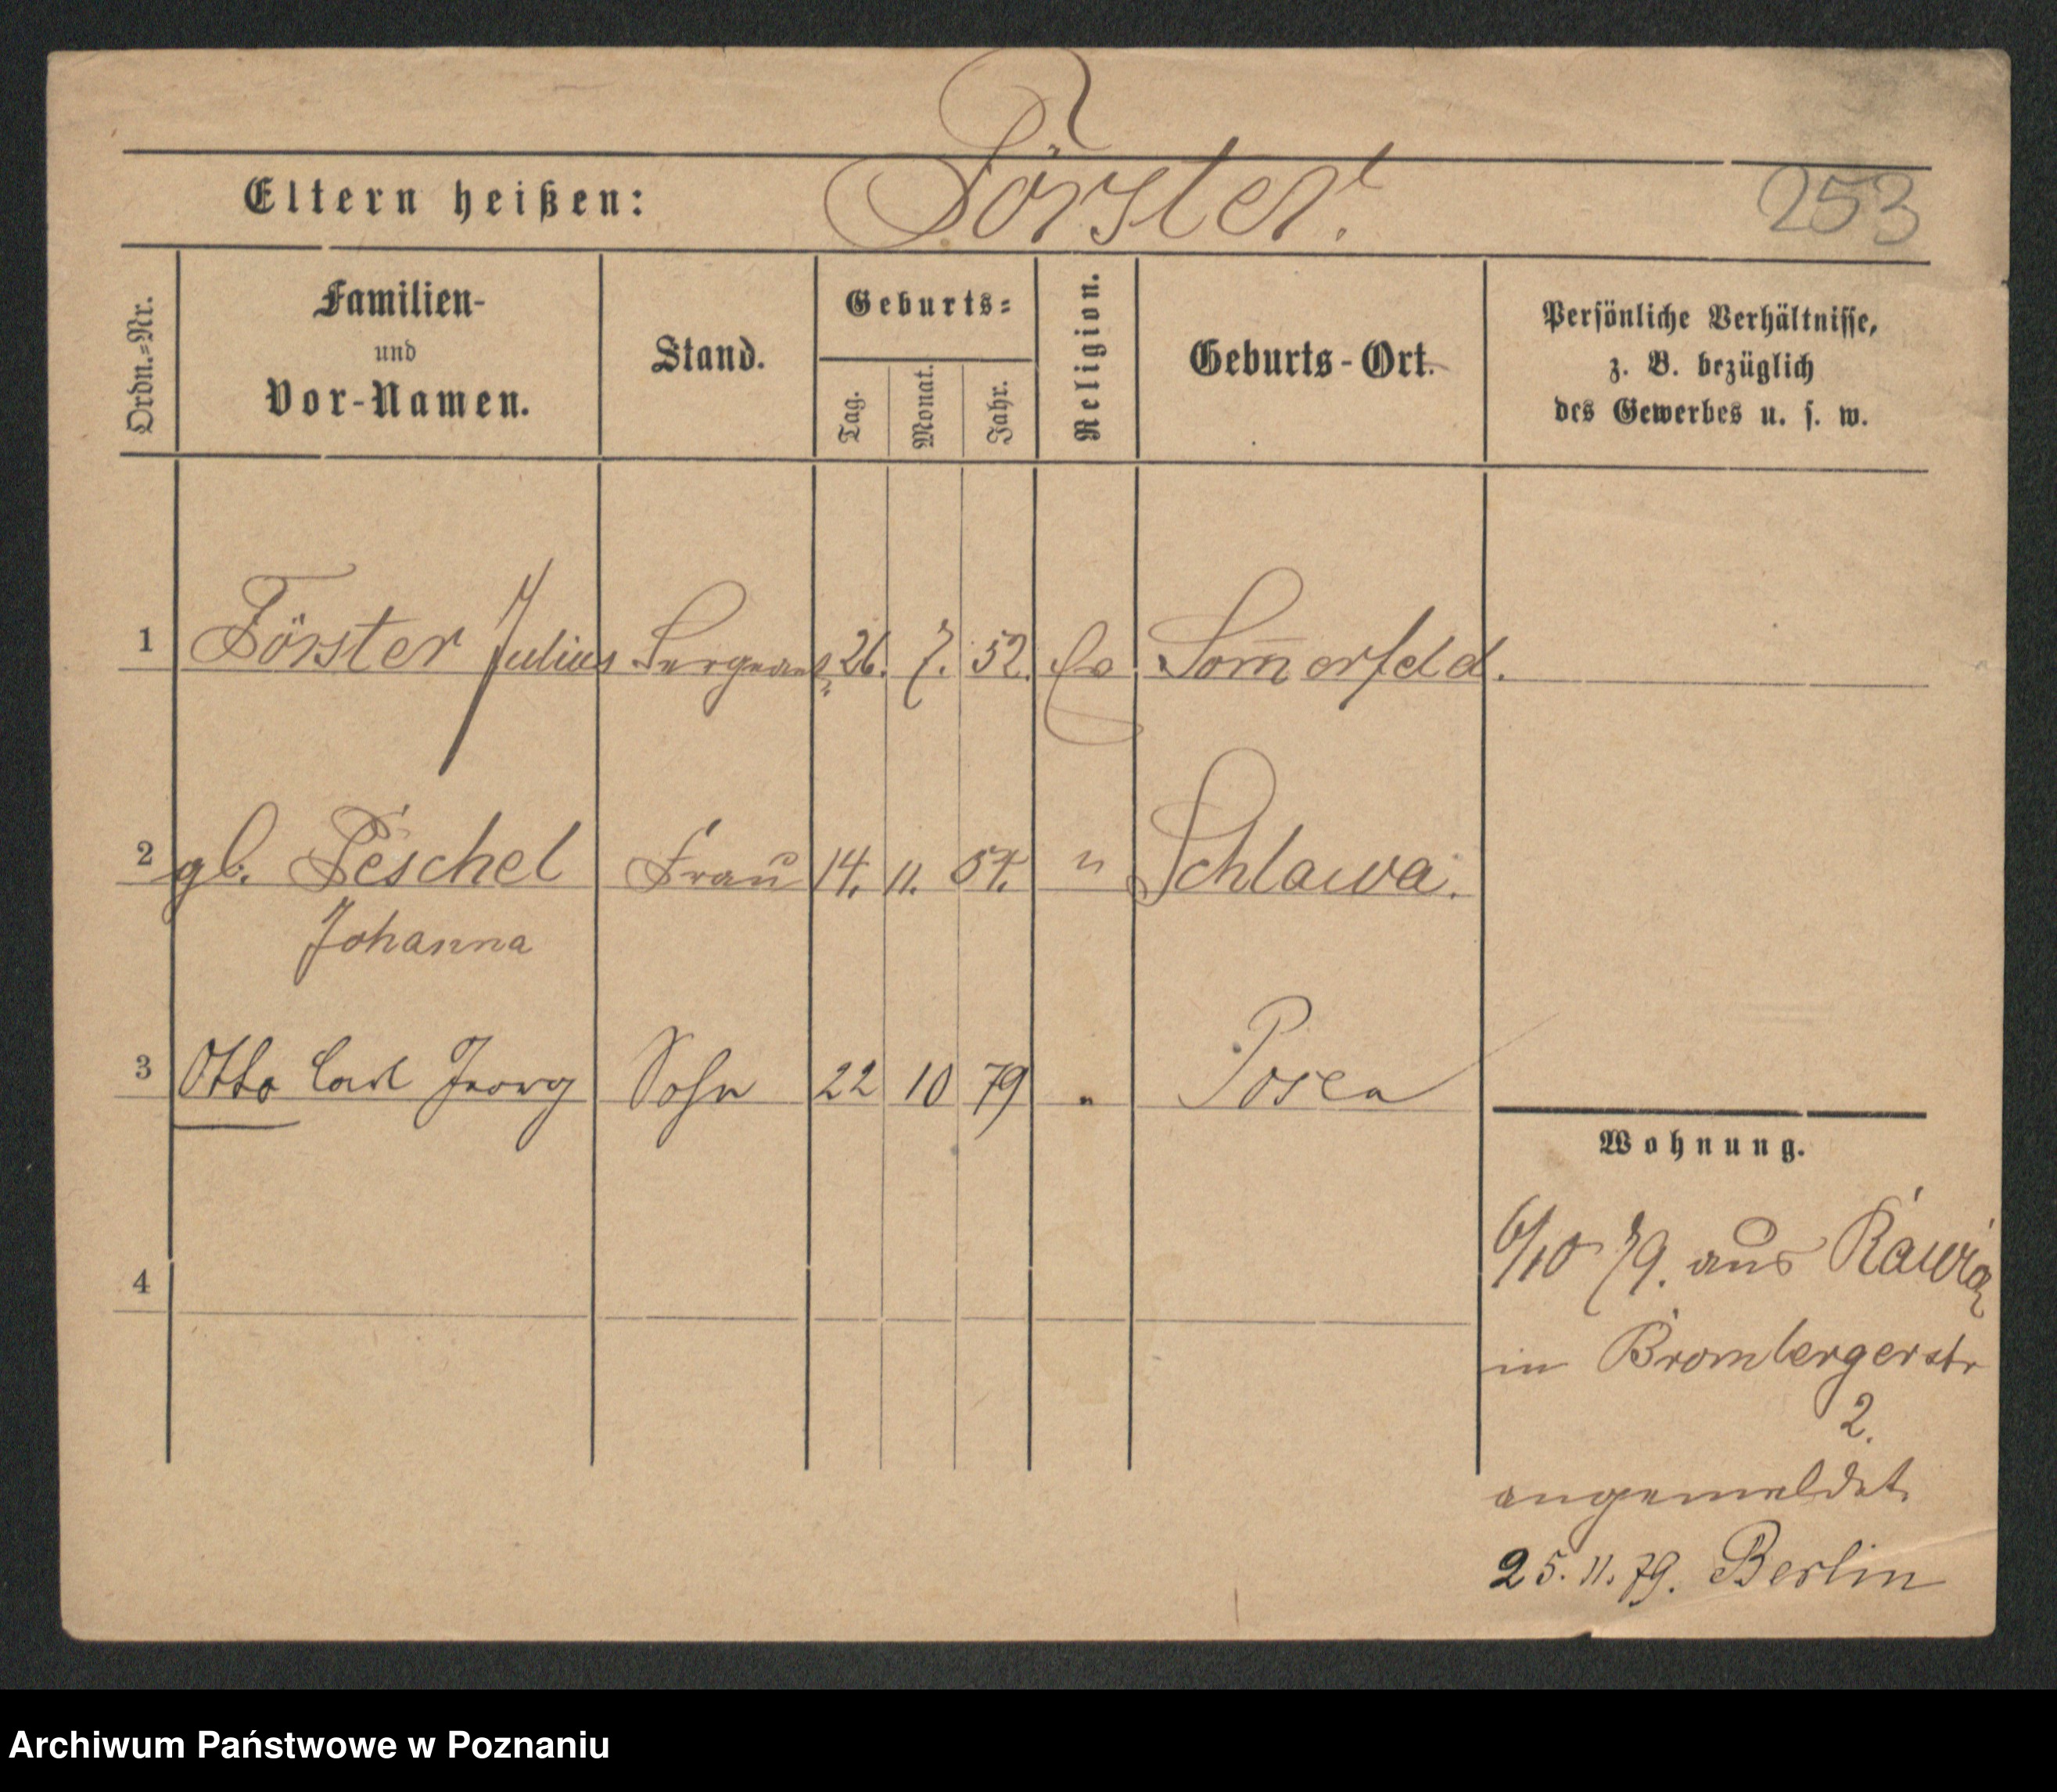 Förster.
Eltern heißen:
253
Ordn.=Nr.
Familien-
und
Vor-Namen.
Stand.
Geburts=
Tag.
Monat.
Jahr.
Religion.
Geburts-Ort.
Persönliche Verhältnisse,
z. B. bezüglich
des Gewerbes u. s. w.
1 Förster Julius Sergeant 26. 7. 52. Ev Som̄erfeld.
2 gb. Peschel Frau 14. 11. 54. " Schlawa.
Johanna
3 Otto Carl Georg Sohn 22 10 79 " Posen
Wohnung.
6/10 79. aus
4
in Brombergerstr
2.
angemeldet
25. 11. 79. Berlin
Archiwum Państwowe w Poznaniu